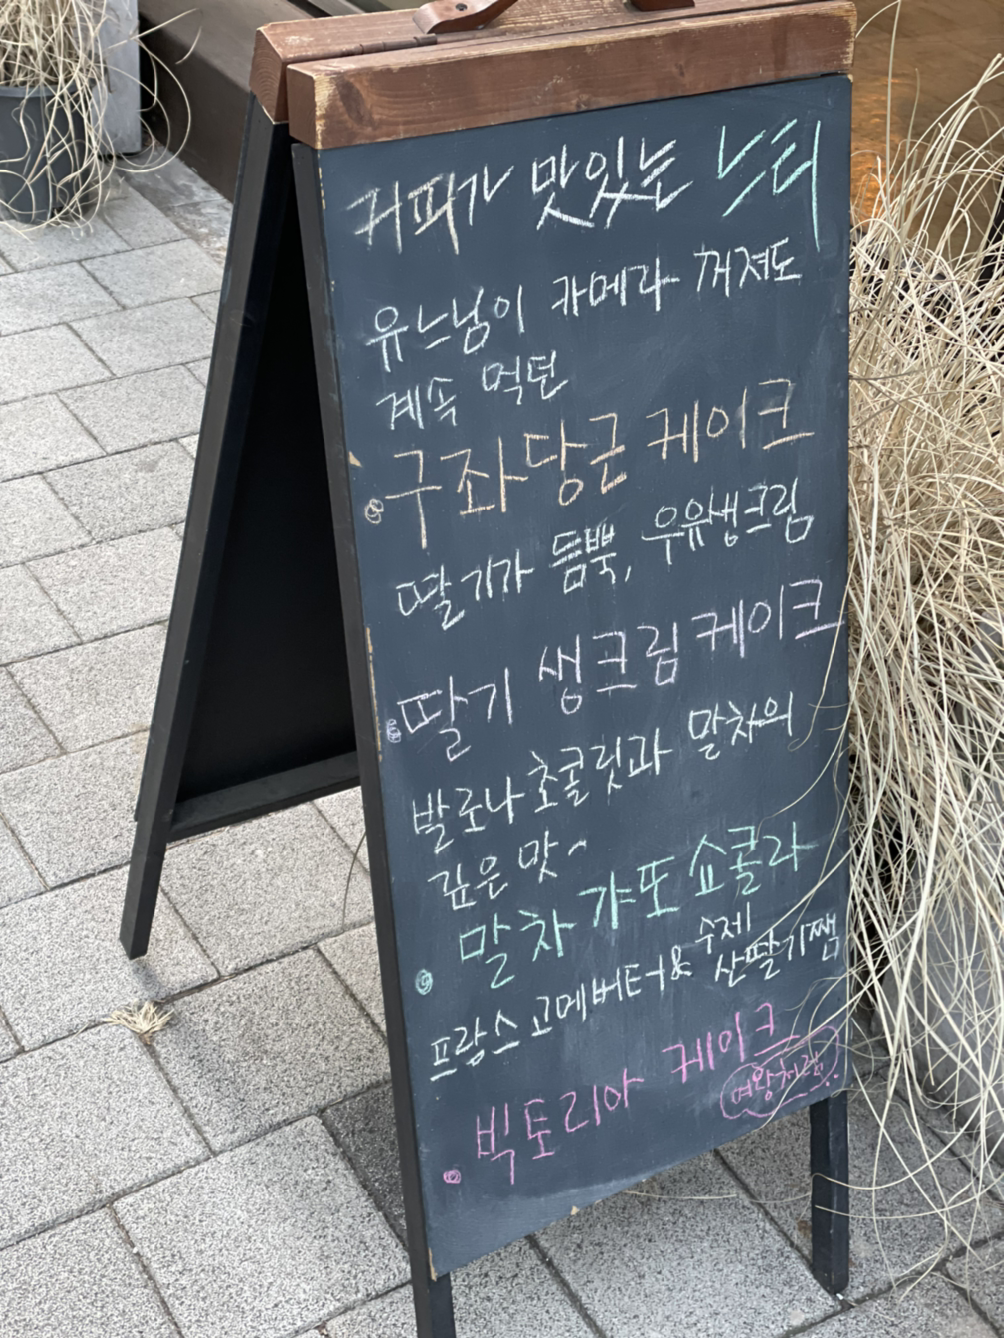 커피가 맛있는 느티
유느님이 카메라 꺼져도
계속 먹던
구좌당근 케이크
딸기가 듬뿍, 우유생크림
딸기 생크림케이크
발로나 초콜릿과 말차의
깊은 맛~
말차 갸또 쇼콜라
프랑스 고메버터 & 수제 산딸기쨈
빅토리아 케이크
여왕처럼..